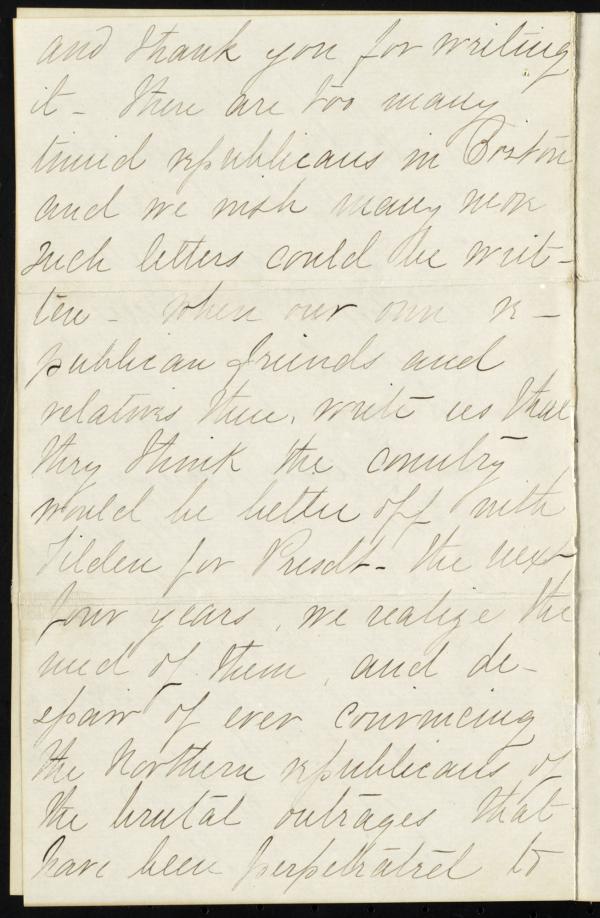 and thank you for writing
it - there are too many
timid republicans in Boston
and we wish many more
such letters could be writ-
ten - When our own re-
publican friends and
relatives there, write us that
they think the country
would be better off with
Tilden for Presdt - the next
four years, we realize the
need of them, and de-
spair of ever convincing
the Northern republicans of
the brutal outrages that
have been perpetrated to